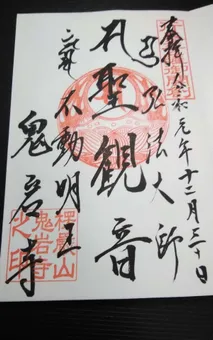 奉拝 令和元年十二月三十日
弘法大師
聖観音
不動明王
鬼岩寺
楞厳山
鬼岩寺
之印